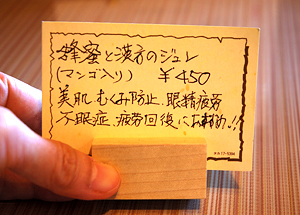 蜂蜜と漢方のジュレ
(マンゴ入り) ¥450
美肌、むくみ防止、眼精疲労
不眠症、疲労回復にお勧め!!